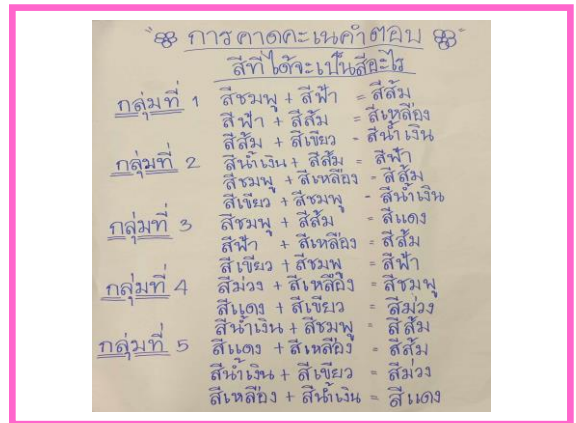 การคาดคะเนคำตอบ
สีที่ได้จะเป็นสีอะไร
กลุ่มที่ 1 สีชมพู + สีฟ้า = สีส้ม
สีฟ้า + สีส้ม = สีเหลือง
สีส้ม + สีเขียว - สีน้ำเงิน
กลุ่มที่ 2 สีน้ำเงิน + สีส้ม = สีฟ้า
สีชมพู + สีเหลือง = สีส้ม
สีเขียว + สีชมพู - สีน้ำเงิน
กลุ่มที่ 3 สีชมพู + สีส้ม = สีแดง
สีฟ้า + สีเหลือง = สีส้ม
สีเขียว + สีชมพู = สีฟ้า
กลุ่มที่ 4 สีม่วง + สีเหลือง = สีชมพู
สีแดง + สีเขียว = สีม่วง
สีน้ำเงิน + สีชมพู = สีส้ม
กลุ่มที่ 5 สีแดง + สีเหลือง = สีส้ม
สีน้ำเงิน + สีเขียว = สีม่วง
สีเหลือง + สีน้ำเงิน = สีแดง